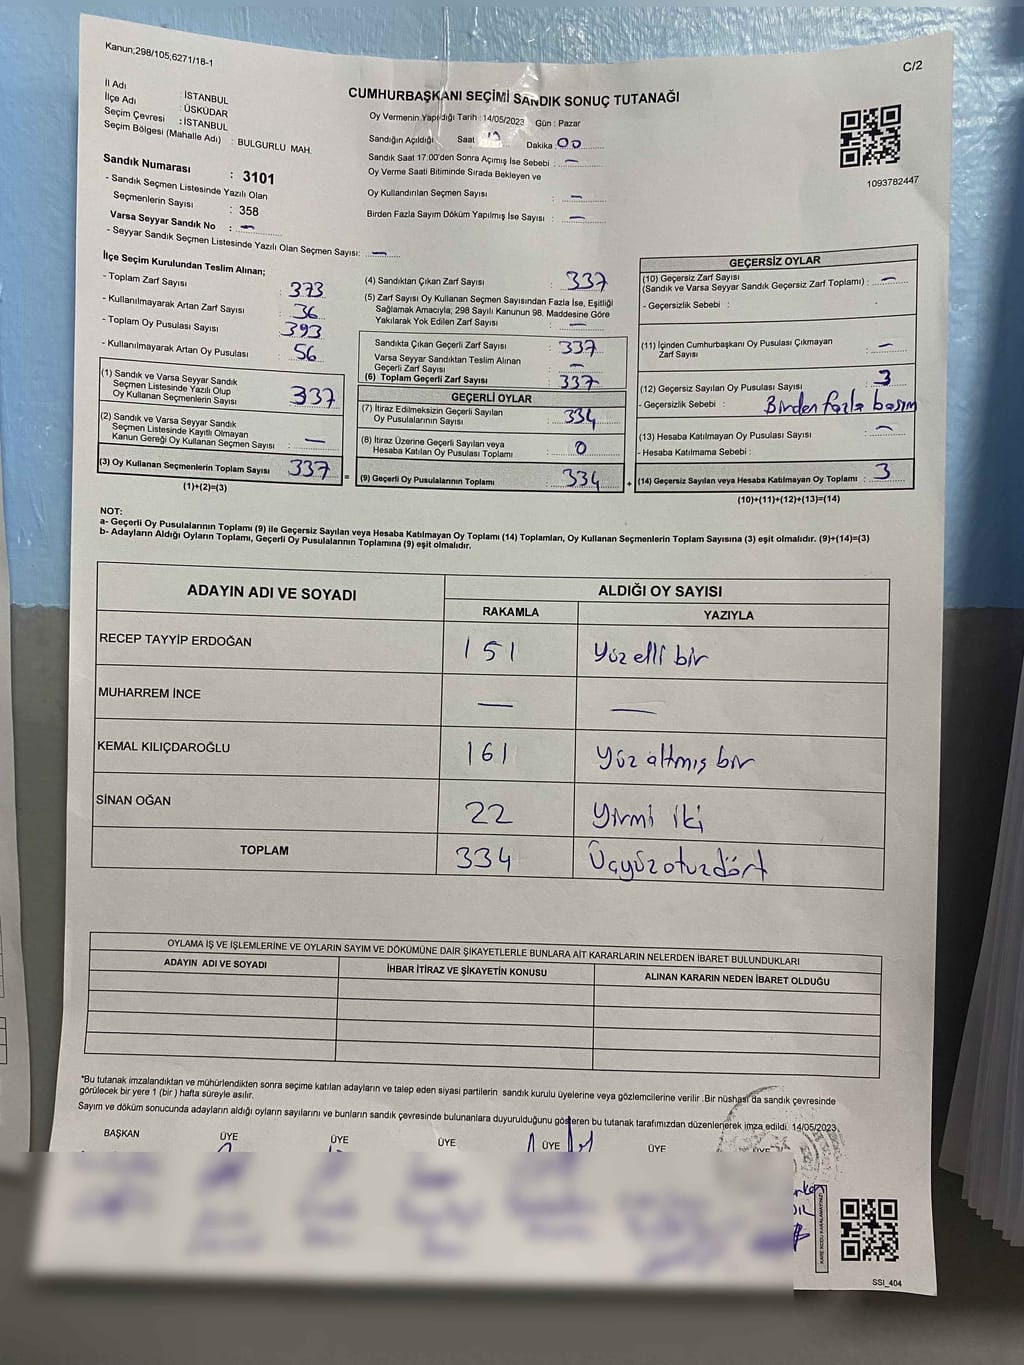 Kanun;298/105,6271/18-1
C/2
CUMHURBAŞKANI SEÇİMİ SANDIK SONUÇ TUTANAĞI
İl Adı : İSTANBUL
İlçe Adı : ÜSKÜDAR
Seçim Çevresi : İSTANBUL
Seçim Bölgesi (Mahalle Adı) : BULGURLU MAH.
Sandık Numarası : 3101
- Sandık Seçmen Listesinde Yazılı Olan
Seçmenlerin Sayısı : 358
Varsa Seyyar Sandık No : —
- Seyyar Sandık Seçmen Listesinde Yazılı Olan Seçmen Sayısı: —
Oy Vermenin Yapıldığı Tarih : 14/05/2023 Gün : Pazar
Sandığın Açıldığı Saat Dakika 00
Sandık Saat 17:00'den Sonra Açımış İse Sebebi : —
Oy Verme Saati Bitiminde Sırada Bekleyen ve
Oy Kullandırılan Seçmen Sayısı : —
Birden Fazla Sayım Döküm Yapılmış İse Sayısı : —
1093782447
İlçe Seçim Kurulundan Teslim Alınan;
- Toplam Zarf Sayısı : 373
- Kullanılmayarak Artan Zarf Sayısı : 36
- Toplam Oy Pusulası Sayısı : 393
- Kullanılmayarak Artan Oy Pusulası : 56
(1) Sandık ve Varsa Seyyar Sandık
Seçmen Listesinde Yazılı Olup
Oy Kullanan Seçmenlerin Sayısı : 337
(2) Sandık ve Varsa Seyyar Sandık
Seçmen Listesinde Kayıtlı Olmayan
Kanun Gereği Oy Kullanan Seçmen Sayısı : —
(3) Oy Kullanan Seçmenlerin Toplam Sayısı : 337 =
(1)+(2)=(3)
(4) Sandıktan Çıkan Zarf Sayısı : 337
(5) Zarf Sayısı Oy Kullanan Seçmen Sayısından Fazla İse, Eşitliği
Sağlamak Amacıyla; 298 Sayılı Kanunun 98. Maddesine Göre
Yakılarak Yok Edilen Zarf Sayısı : —
Sandıkta Çıkan Geçerli Zarf Sayısı : 337
Varsa Seyyar Sandıktan Teslim Alınan
Geçerli Zarf Sayısı : —
(6) Toplam Geçerli Zarf Sayısı : 337
GEÇERLİ OYLAR
(7) İtiraz Edilmeksizin Geçerli Sayılan
Oy Pusulalarının Sayısı : 334
(8) İtiraz Üzerine Geçerli Sayılan veya
Hesaba Katılan Oy Pusulası Toplamı : 0
(9) Geçerli Oy Pusulalarının Toplamı : 334 +
GEÇERSİZ OYLAR
(10) Geçersiz Zarf Sayısı
(Sandık ve Varsa Seyyar Sandık Geçersiz Zarf Toplamı) : —
- Geçersizlik Sebebi :
(11) İçinden Cumhurbaşkanı Oy Pusulası Çıkmayan
Zarf Sayısı : —
(12) Geçersiz Sayılan Oy Pusulası Sayısı : 3
- Geçersizlik Sebebi : Birden fazla basım
(13) Hesaba Katılmayan Oy Pusulası Sayısı : —
- Hesaba Katılmama Sebebi :
(14) Geçersiz Sayılan veya Hesaba Katılmayan Oy Toplamı : 3
(10)+(11)+(12)+(13)=(14)
NOT:
a- Geçerli Oy Pusulalarının Toplamı (9) ile Geçersiz Sayılan veya Hesaba Katılmayan Oy Toplamı (14) Toplamları, Oy Kullanan Seçmenlerin Toplam Sayısına (3) eşit olmalıdır. (9)+(14)=(3)
b- Adayların Aldığı Oyların Toplamı, Geçerli Oy Pusulalarının Toplamına (9) eşit olmalıdır.
ADAYIN ADI VE SOYADI ALDIĞI OY SAYISI
RAKAMLA YAZIYLA
RECEP TAYYİP ERDOĞAN 151 Yüz elli bir
MUHARREM İNCE — —
KEMAL KILIÇDAROĞLU 161 Yüz altmış bir
SİNAN OĞAN 22 Yirmi iki
TOPLAM 334 Üçyüzotuzdört
OYLAMA İŞ VE İŞLEMLERİNE VE OYLARIN SAYIM VE DÖKÜMÜNE DAİR ŞİKAYETLERLE BUNLARA AİT KARARLARIN NELERDEN İBARET BULUNDUKLARI
ADAYIN ADI VE SOYADI İHBAR İTİRAZ VE ŞİKAYETİN KONUSU ALINAN KARARIN NEDEN İBARET OLDUĞU
*Bu tutanak imzalandıktan ve mühürlendikten sonra seçime katılan adayların ve talep eden siyasi partilerin sandık kurulu üyelerine veya gözlemcilerine verilir .Bir nüshası da sandık çevresinde
görülecek bir yere 1 (bir ) hafta süreyle asılır.
Sayım ve döküm sonucunda adayların aldığı oyların sayılarını ve bunların sandık çevresinde bulunanlara duyurulduğunu gösteren bu tutanak tarafımızdan düzenlenerek imza edildi. 14/05/2023
BAŞKAN ÜYE ÜYE ÜYE ÜYE ÜYE ÜYE
KARE KODU KARALAMAYINIZ
SSI_404